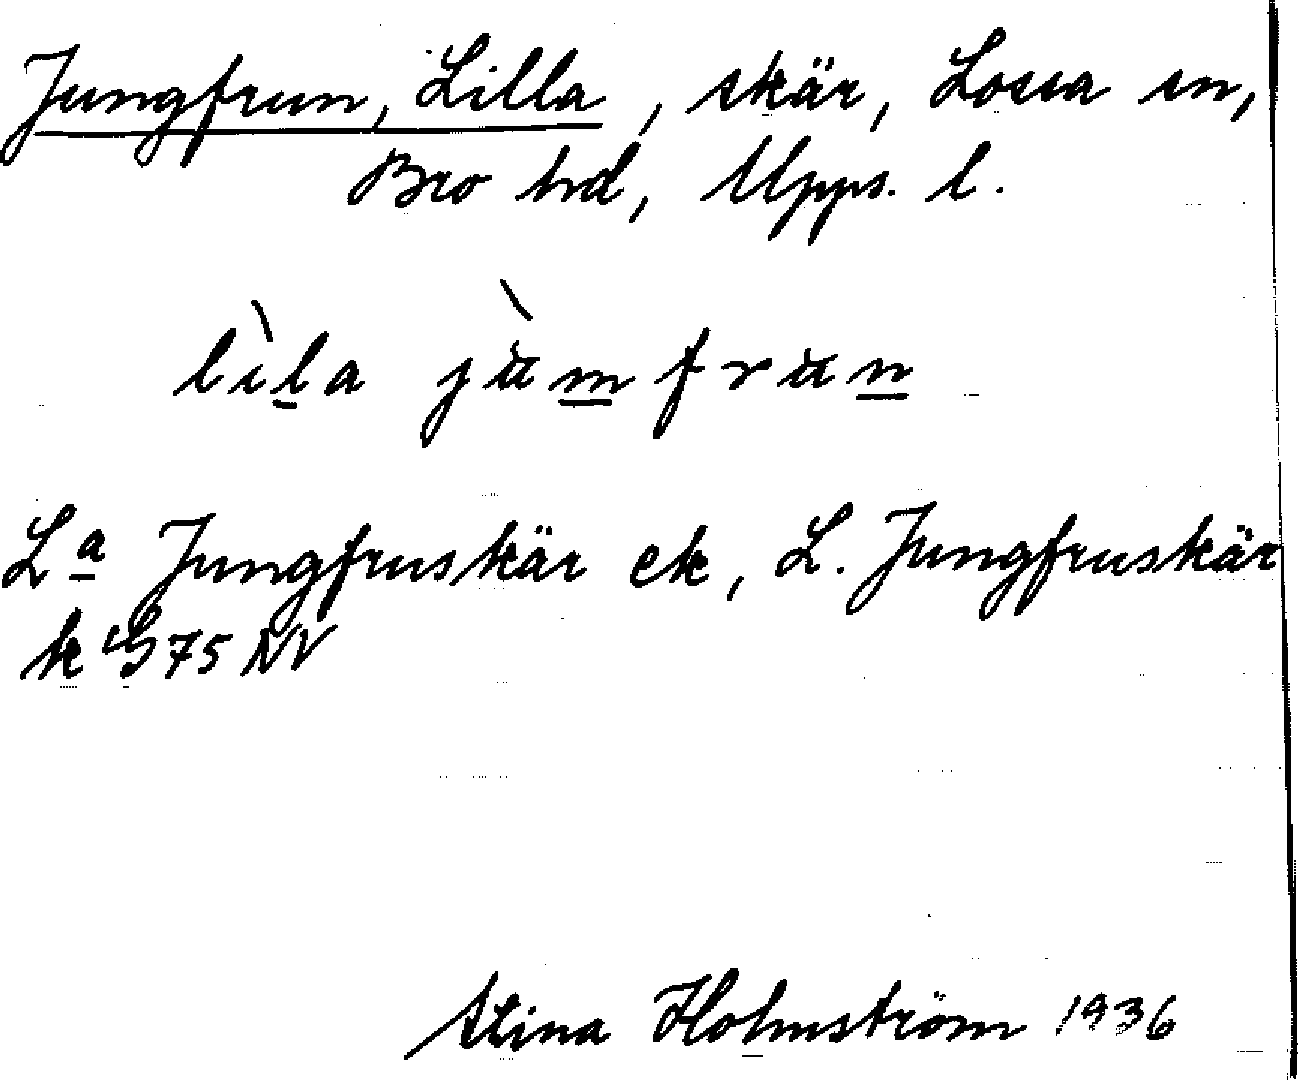 Jungfrun, Lilla, skär, Lossa sn,
Bro hd, Upps. l.
lìla jùmfrun
La Jungfruskär ek, L. Jungfruskär
k G 75 NV
Stina Holmström 1936